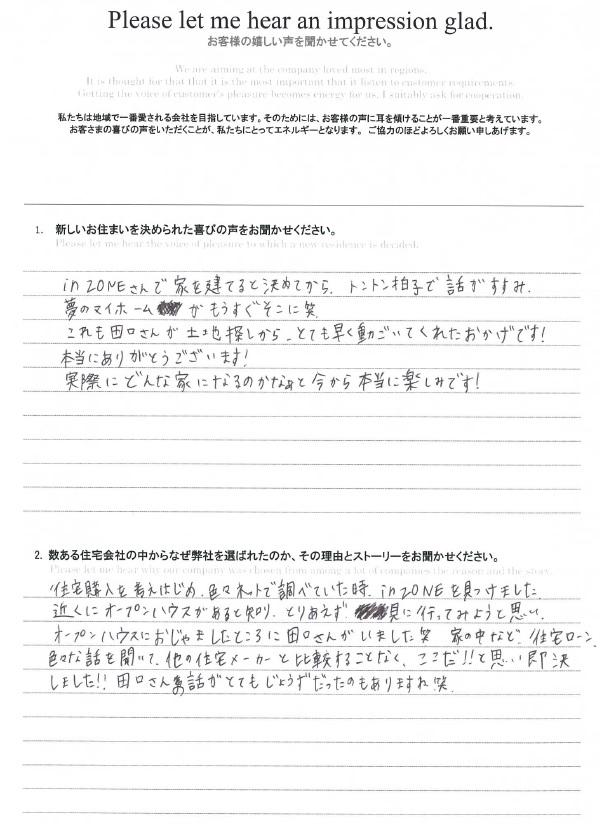 Please let me hear an impression glad.
お客様の嬉しい声を聞かせてください。
We are aiming at the company loved most in regions.
It is thought for that that it is the most important that it listen to customer requirements.
Getting the voice of customer's pleasure becomes energy for us. I suitably ask for cooperation.
私たちは地域で一番愛される会社を目指しています。そのためには、お客様の声に耳を傾けることが一番重要と考えています。
お客さまの喜びの声をいただくことが、私たちにとってエネルギーとなります。 ご協力のほどよろしくお願い申しあげます。
1. 新しいお住まいを決められた喜びの声をお聞かせください。
Please let me hear the voice of pleasure to which a new residence is decided.
in ZONEさんで家を建てると決めてから、トントン拍子で話がすすみ、
夢のマイホームがもうすぐそこに笑
これも田口さんが土地探しから、とても早く動ごいてくれたおかげです!
本当にありがとうございます!
実際にどんな家になるのかなぁと今から本当に楽しみです!
2. 数ある住宅会社の中からなぜ弊社を選ばれたのか、その理由とストーリーをお聞かせください。
Please let me hear why our company was chosen from among a lot of companies the reason and the story.
住宅購入を考えはじめ、色々ネットで調べていた時、in ZONEを見つけました。
近くにオープンハウスがあると知り、とりあえず見に行ってみようと思い、
オープンハウスにおじゃましたところに田口さんがいました笑 家の中など、住宅ローン、
色々な話を聞いて、他の住宅メーカーと比較することなく、ここだ!!と思い即決
しました!! 田口さんの話がとてもじょうずだったのもありますね笑